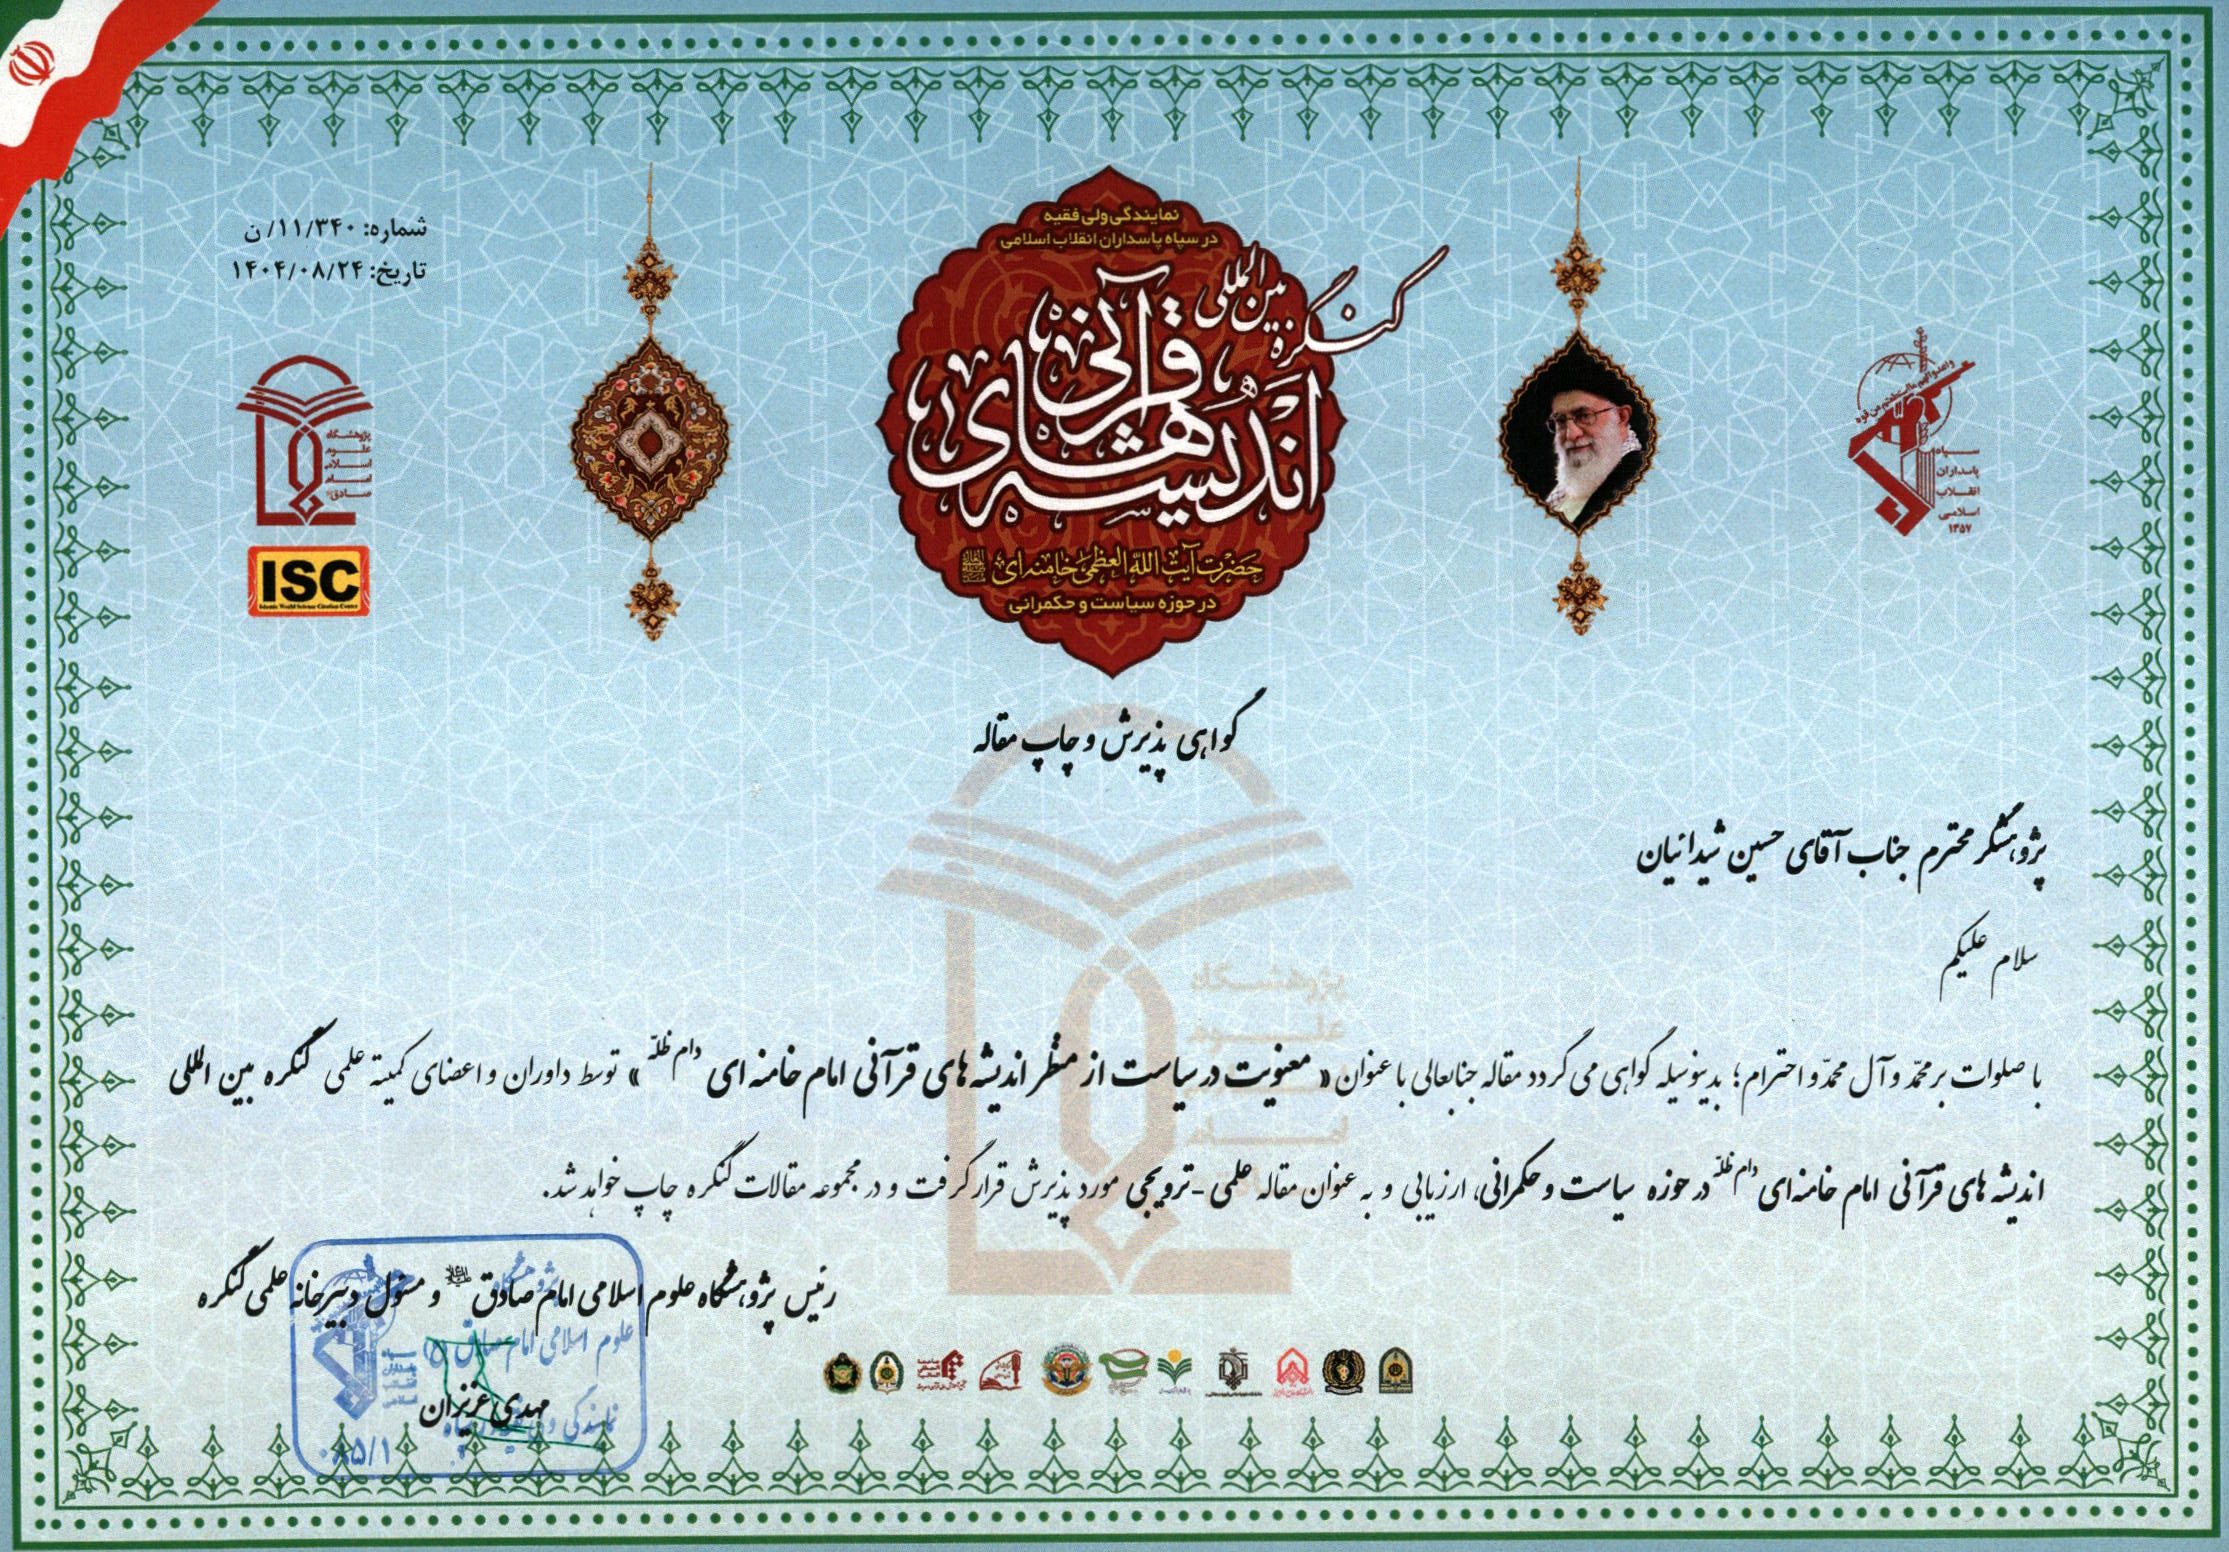 شماره: ۱۱/۳۴۰/ن
تاریخ: ۱۴۰۴/۰۸/۲۴
نمایندگی ولی فقیه
در سپاه پاسداران انقلاب اسلامی
کنگره بین المللی
اندیشه های قرآنی
حضرت آیت الله العظمی خامنه ای
در حوزه سیاست و حکمرانی
سپاه
پاسداران
انقلاب
اسلامی
۱۳۵۷
پژوهشگاه
علوم
اسلامی
امام
صادق
ISC
Islamic World Science Citation Center
گواهی پذیرش و چاپ مقاله
پژوهشگر محترم جناب آقای حسین شیدائیان
سلام علیکم
با صلوات بر محمّد و آل محمّد و احترام؛ بدینوسیله گواهی می گردد مقاله جنابعالی با عنوان « معنویت در سیاست از منظر اندیشه های قرآنی امام خامنه ای دام ظلّه » توسط داوران و اعضای کمیته علمی کنگره بین المللی
اندیشه های قرآنی امام خامنه ای دام ظلّه در حوزه سیاست و حکمرانی، ارزیابی و به عنوان مقاله علمی - ترویجی مورد پذیرش قرار گرفت و در مجموعه مقالات کنگره چاپ خواهد شد.
رئیس پژوهشگاه علوم اسلامی امام صادق علیه‌السلام و مسئول دبیرخانه علمی کنگره
مهدی عزیزان
پژوهشگاه
علوم اسلامی امام صادق (ع)
پژوهشگاه
علوم
امام